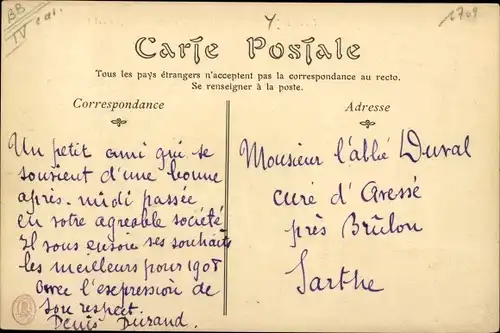 BB
IV car.
Y.
Carte Postale
Tous les pays étrangers n'acceptent pas la correspondance au recto.
Se renseigner à la poste.
Correspondance
Un petit ami qui se
souvient d'une bonne
après-midi passée
en votre agreable société
Il vous envoie ses souhaits
les meilleurs pour 1908
avec l'expression de
son respect.
Denis Durand.
Adresse
Monsieur l'abbé Duval
curé d'Avessé
près Brûlon
Sarthe